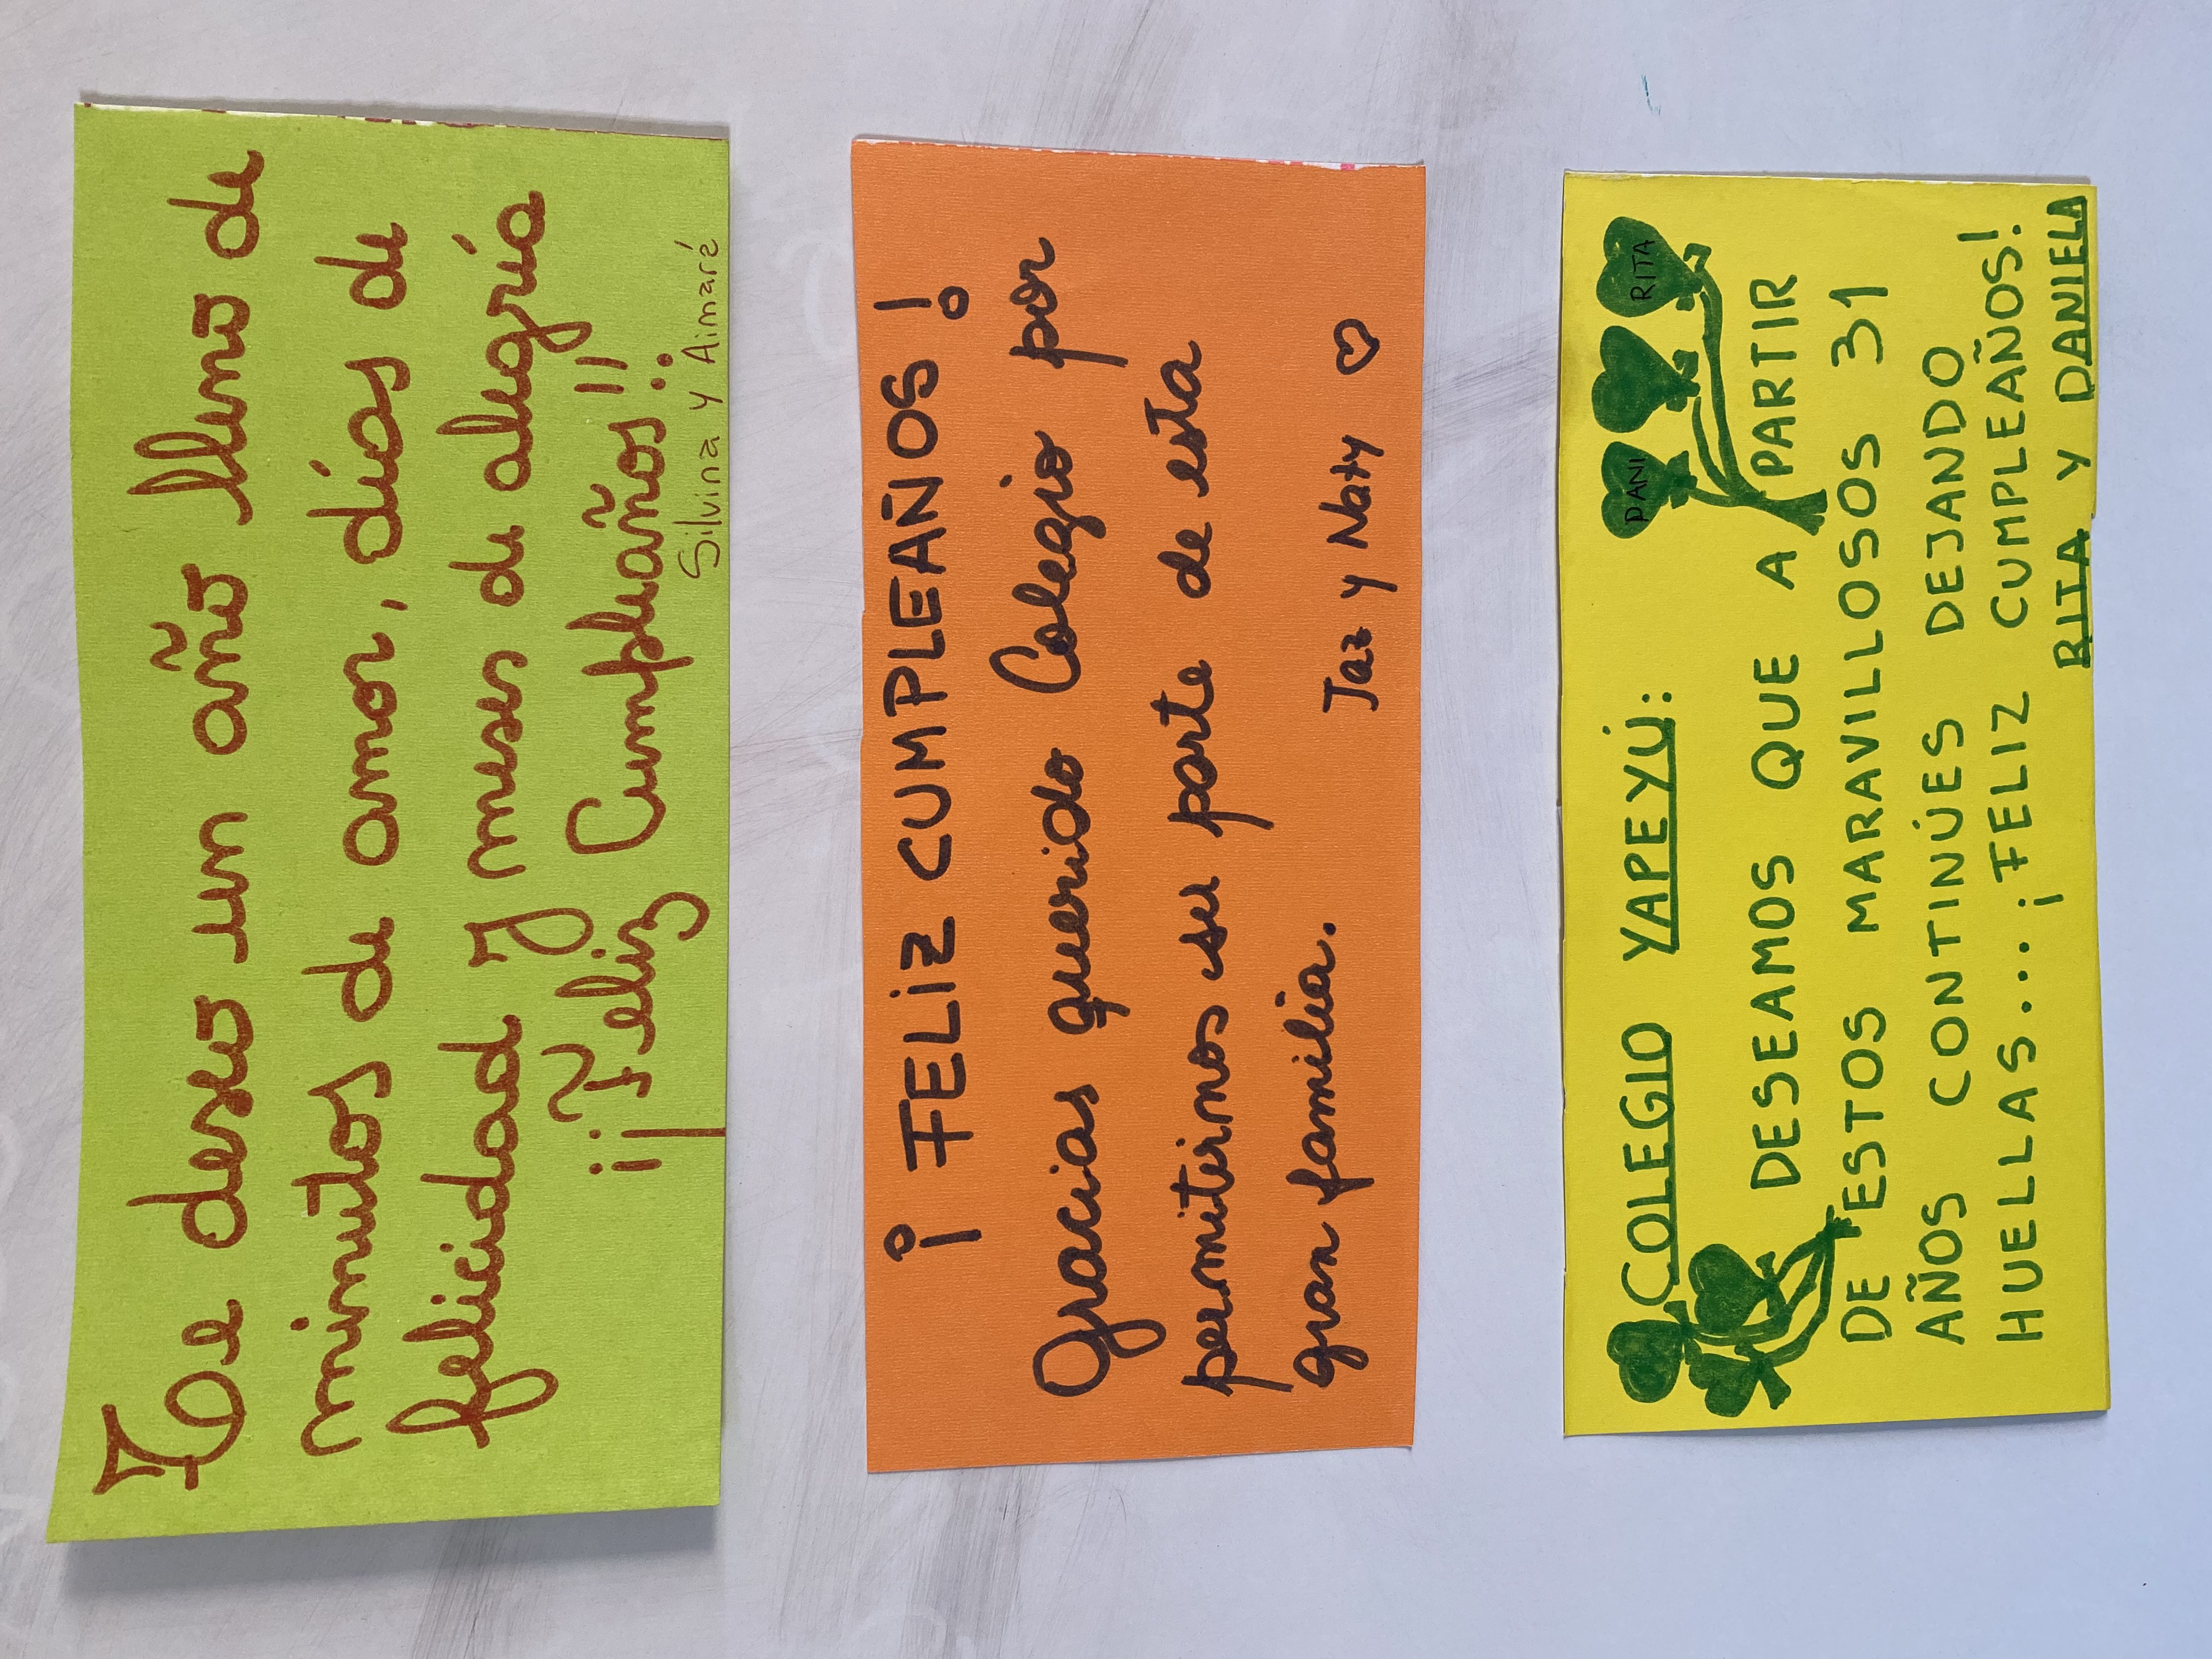 Te deseo un año lleno de
minutos de amor, días de
felicidad y meses de alegría
¡¡Feliz Cumpleaños!!
Silvina y Aimaré
¡FELiZ CUMPLEAÑOS!
Gracias querido Colegio por
permitirnos ser parte de esta
gran familia.
Jaz y Naty
DANI RITA
COLEGIO YAPEYÚ:
DESEAMOS QUE A PARTIR
DE ESTOS MARAVILLOSOS 31
AÑOS CONTINÚES DEJANDO
HUELLAS... ¡FELIZ CUMPLEAÑOS!
RITA Y DANIELA